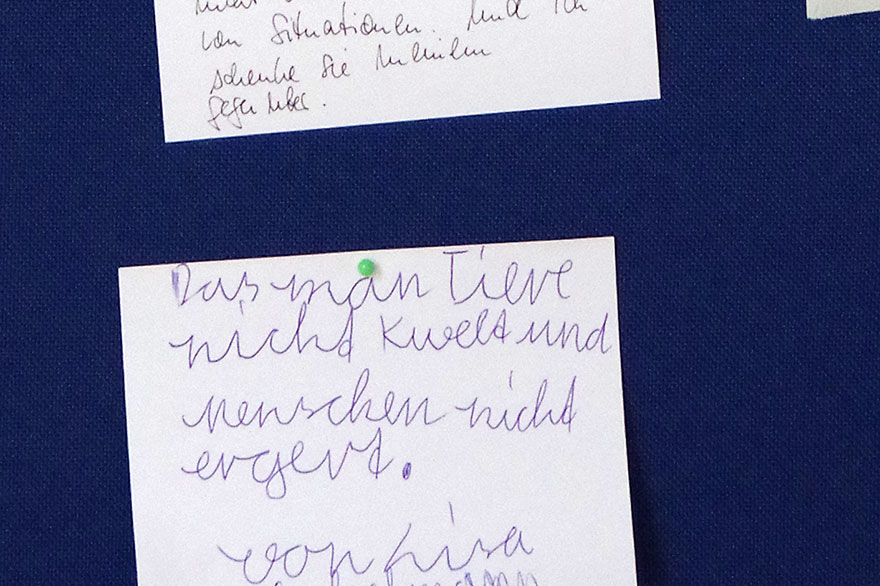 von Situationen. Und ich
schenke Sie
gegenüber.
Das man Tiere
nicht kwelt und
menschen nicht
ergert.
von Lisa